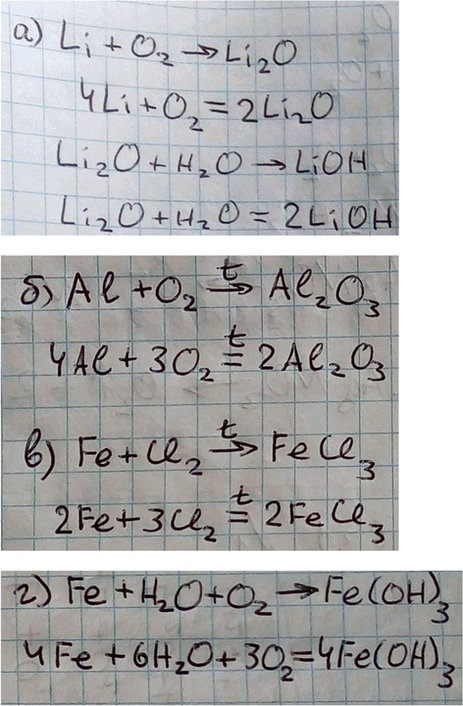 а) Li + O₂ → Li₂O
4Li + O₂ = 2Li₂O
Li₂O + H₂O → LiOH
Li₂O + H₂O = 2LiOH
б) Al + O₂ →ᵗ Al₂O₃
4Al + 3O₂ =ᵗ 2Al₂O₃
в) Fe + Cl₂ →ᵗ FeCl₃
2Fe + 3Cl₂ =ᵗ 2FeCl₃
г) Fe + H₂O + O₂ → Fe(OH)₃
4Fe + 6H₂O + 3O₂ = 4Fe(OH)₃